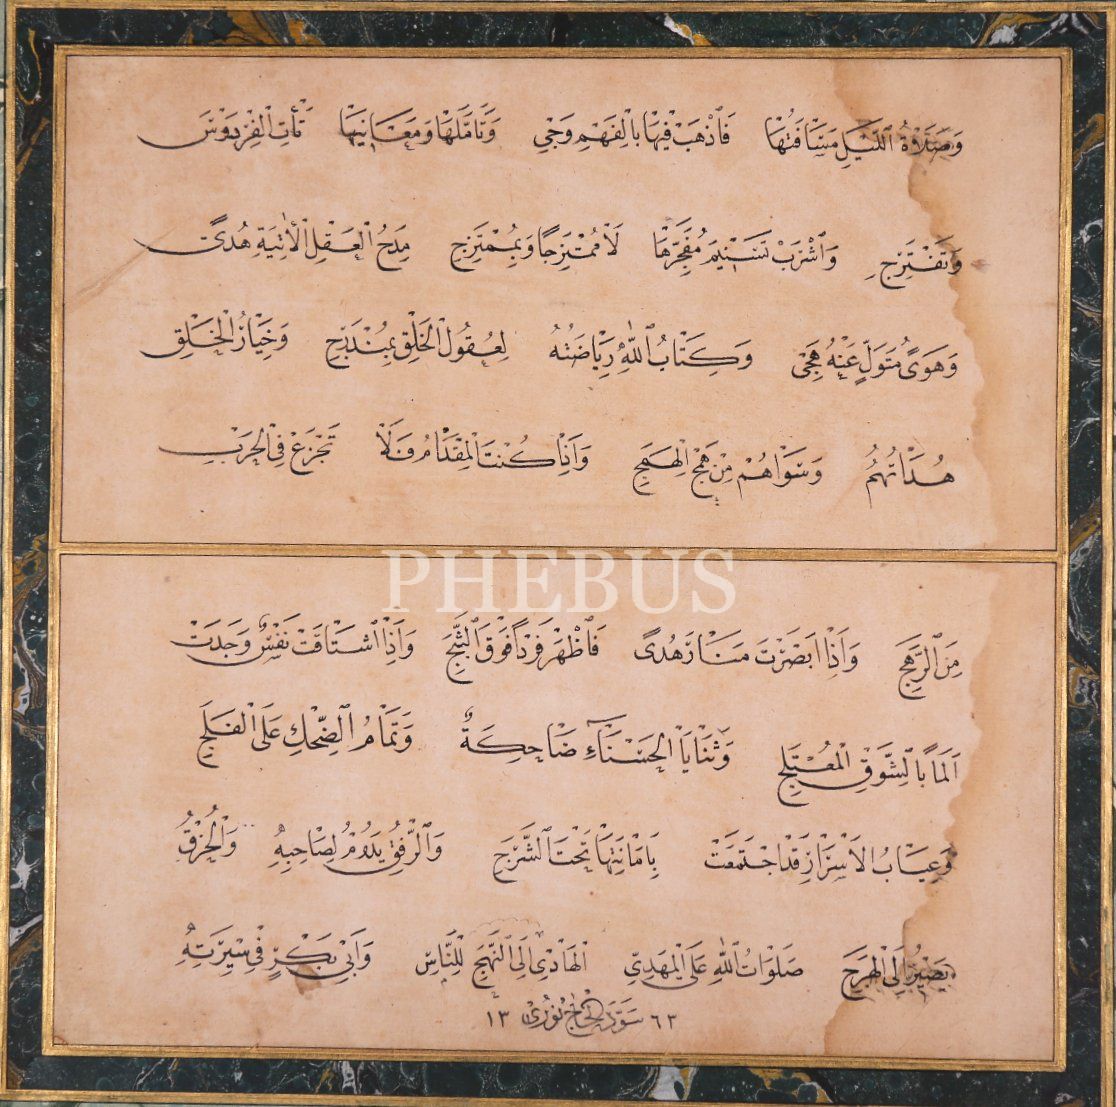 وَصَلَاةُ اللَّيْلِ مَسَافَتُهَا فَاذْهَبْ فِيهَا بِالْفَهْمِ وَجِي وَتَأَمَّلْهَا وَمَعَانِيَهَا تَأْتِ الْفِرْدَوْسَ
وَتَفْتَرِجِ وَاشْرَبْ تَسْنِيمَ مُفَجَّرِهَا لَا مُمْتَزِجًا وَبِمُمْتَزِجِ مَدْحُ الْعَقْلِ الْآتِيَةِ هُدًى
وَهَوًى مُتَوَلٍّ عَنْهُ هُجِي وَكِتَابُ اللهِ رِيَاضَتُهُ لِعُقُولِ الْخَلْقِ بِمُنْدَرِجِ وَخِيَارُ الْخَلْقِ
هُدَاتُهُمُ وَسِوَاهُمْ مِنْ هَمَجِ الْهَمَجِ وَإِذَا كُنْتَ الْمِقْدَامُ فَلَا تَجْزَعْ فِي الْحَرْبِ
PHEBUS
مِنَ الرَّهَجِ وَإِذَا أَبْصَرْتَ مَنَارَ هُدًى فَاظْهَرْ فَرْدًا فَوْقَ الثَّبَجِ وَإِذَا اشْتَاقَتْ نَفْسٌ وَجَدَتْ
أَلَمًا بِالشَّوْقِ الْمُعْتَلِجِ وَثَنَايَا الْحَسْنَاءِ ضَاحِكَةٌ وَتَمَامُ الضِّحْكِ عَلَى الْفَلَجِ
وَعِيَابُ الْأَسْرَارِ قَدِ اجْتَمَعَتْ بِأَمَانَتِهَا تَحْتَ الشَّرَجِ وَالرِّفْقُ يَدُومُ لِصَاحِبِهِ وَالْخُرْقُ
يَصِيرُ إِلَى الْهَرَجِ صَلَوَاتُ اللهِ عَلَى الْمَهْدِيِّ الْهَادِي إِلَى النَّهْجِ لِلنَّاسِ وَأَبِي بَكْرٍ فِي سِيرَتِهِ
سَوَّدَهُ الْحَاجّ نُورِي ١٣ ٦٣